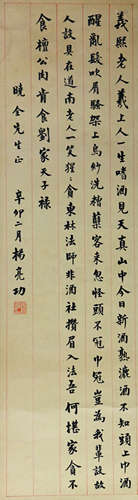 義熙老人羲上人一生嗜酒見天真山中今日新酒熟漉酒不知頭上巾酒
醒亂髮吹肩騷架上烏紗洗糟蘖客來忽怪頭不冠巾冠豈為我輩設故
人設具在道南老人一笑猩猩貪東林法師非酒社攢眉入法吾何堪家貪不
食檀公肉肯食劉家天子祿
曉全先生正
辛卯二月楊亮功